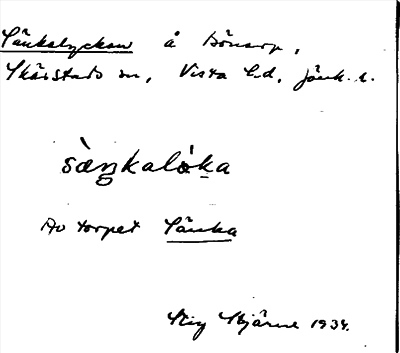 Sänkalyckan å Bönarp,
Skärstads sn, Vista hd, Jönk. l.
sàŋkalòka
Av torpet Sänka
Stig Stjärne 1934.